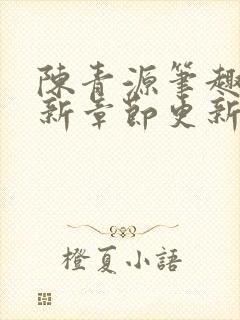 陳青源筆趣
新章節更新
橙夏小語